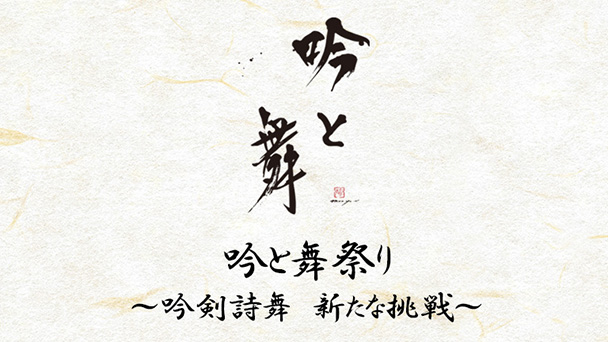 吟と舞
吟と舞祭り
～吟剣詩舞　新たな挑戦～